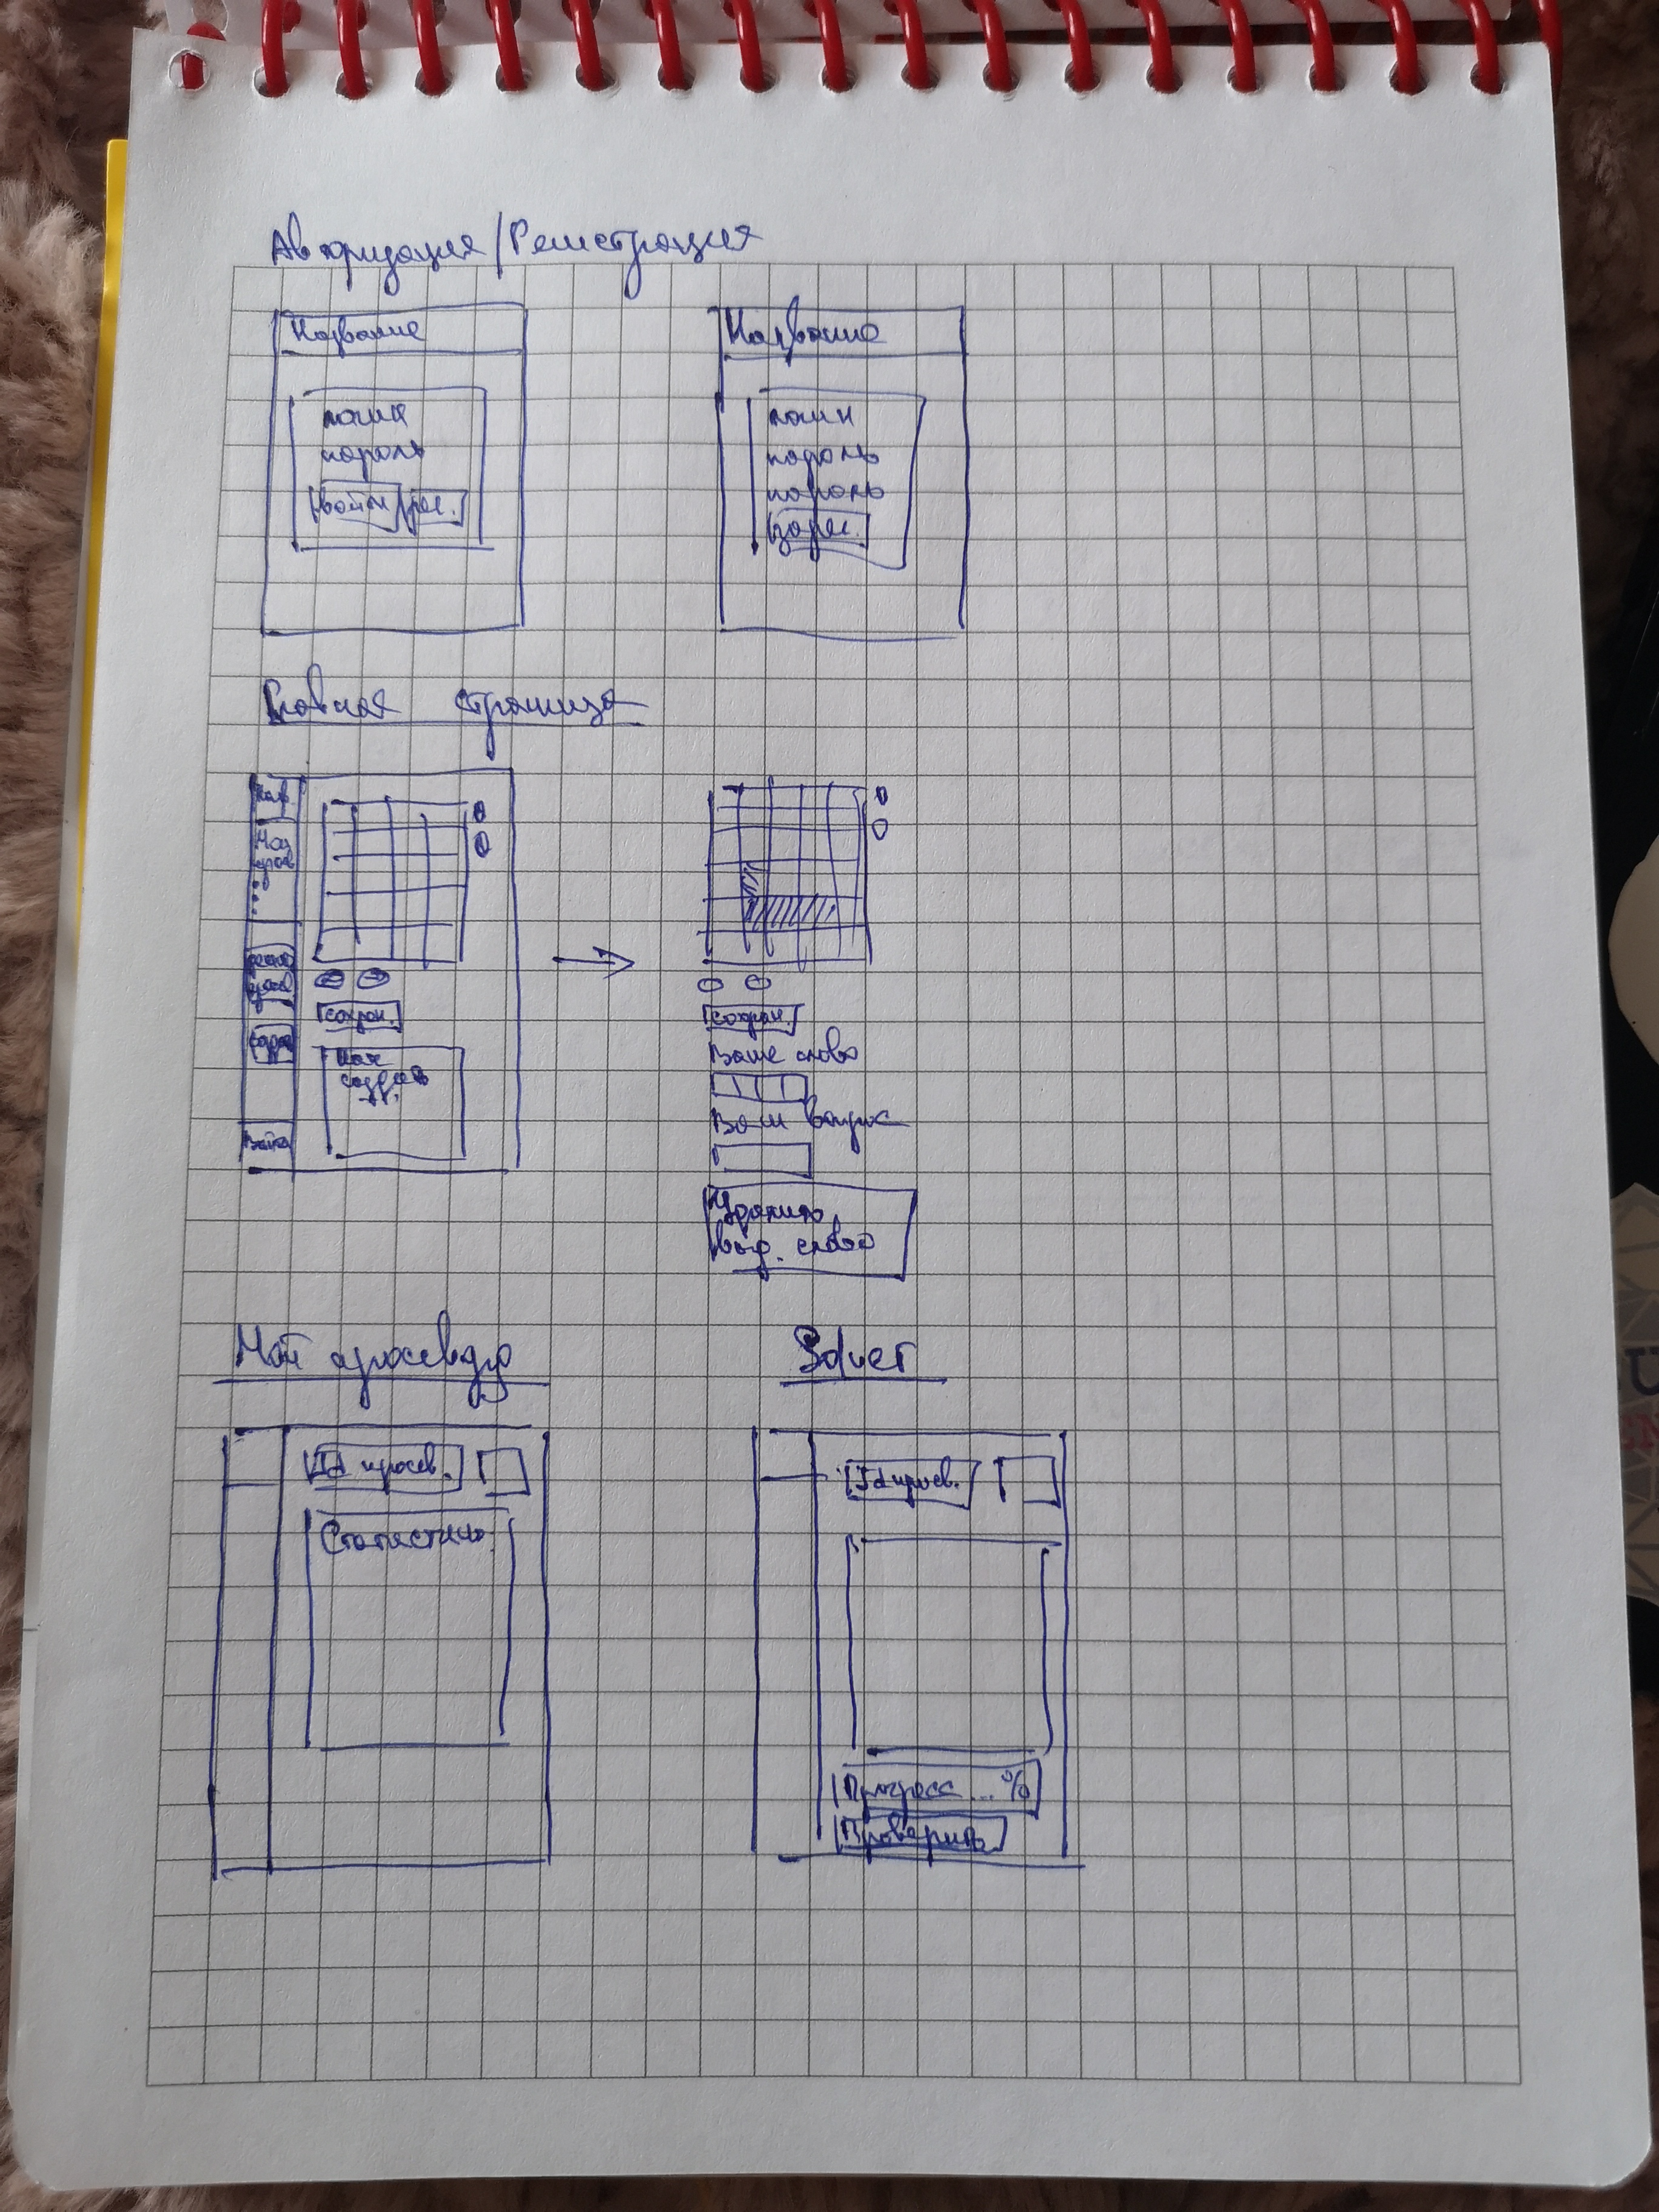 Авторизация/Регистрация
Название
логин
пароль
войти рег.
Название
логин
пароль
пароль
зарег.
Главная страница
Наз.
Мои
кросс
...
Войти
сохран.
Как
создать
сохран.
Ваше слово
Ваш вопрос
Удалить
выд. слово
Мой кроссворд
Id кроссв.
Статистика
Solver
Id кроссв.
Прогресс ... %
Проверить